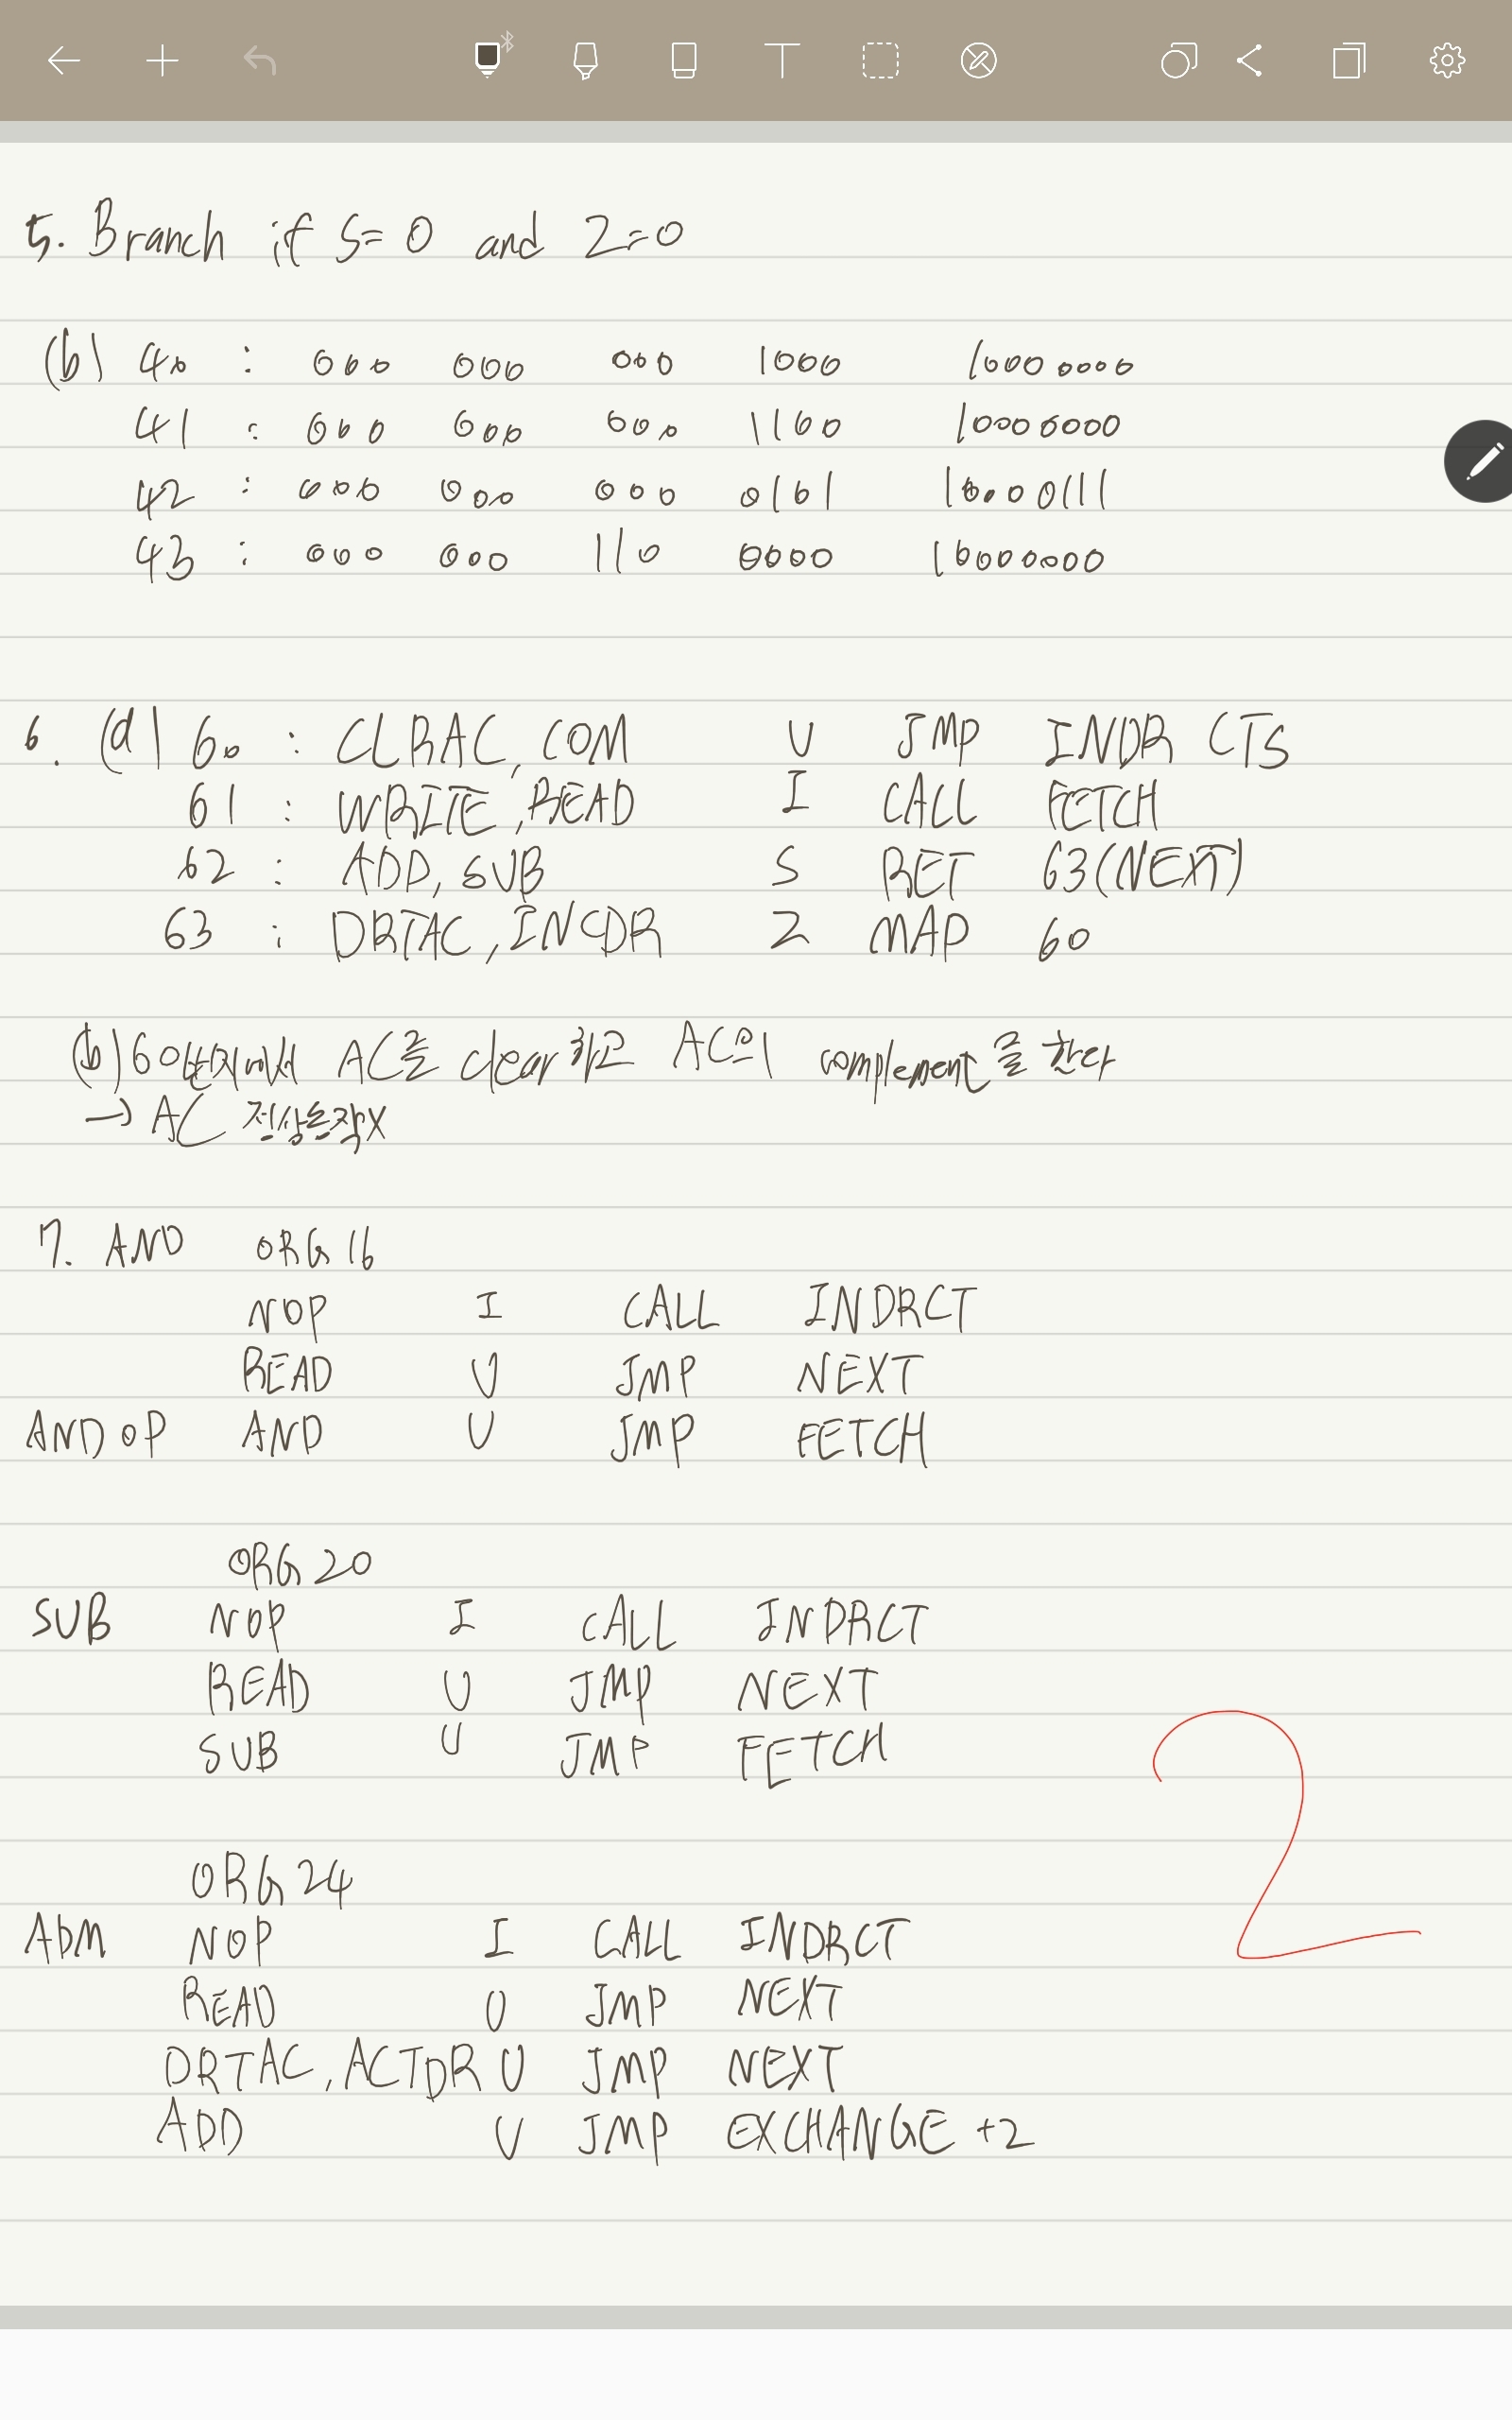 5. Branch if S=0 and Z=0
(b) 40 : 000 000 000 1000 10000000
41 : 000 000 000 1100 10000000
42 : 000 000 000 0101 10000111
43 : 000 000 110 0000 10000000
6. (a) 60 : CLRAC, COM U JMP INDR CTS
61 : WRITE, READ I CALL FETCH
62 : ADD, SUB S RET 63(NEXT)
63 : DRTAC, INCDR Z MAP 60
(b) 60번지에서 AC를 clear하고 AC의 complement를 한다
→ AC 정상동작X
7. AND ORG 16
NOP I CALL INDRCT
READ U JMP NEXT
ANDOP AND U JMP FETCH
ORG 20
SUB NOP I CALL INDRCT
READ U JMP NEXT
SUB U JMP FETCH
ORG 24
ADM NOP I CALL INDRCT
READ U JMP NEXT
DRTAC, ACTDR U JMP NEXT
ADD U JMP EXCHANGE +2
2